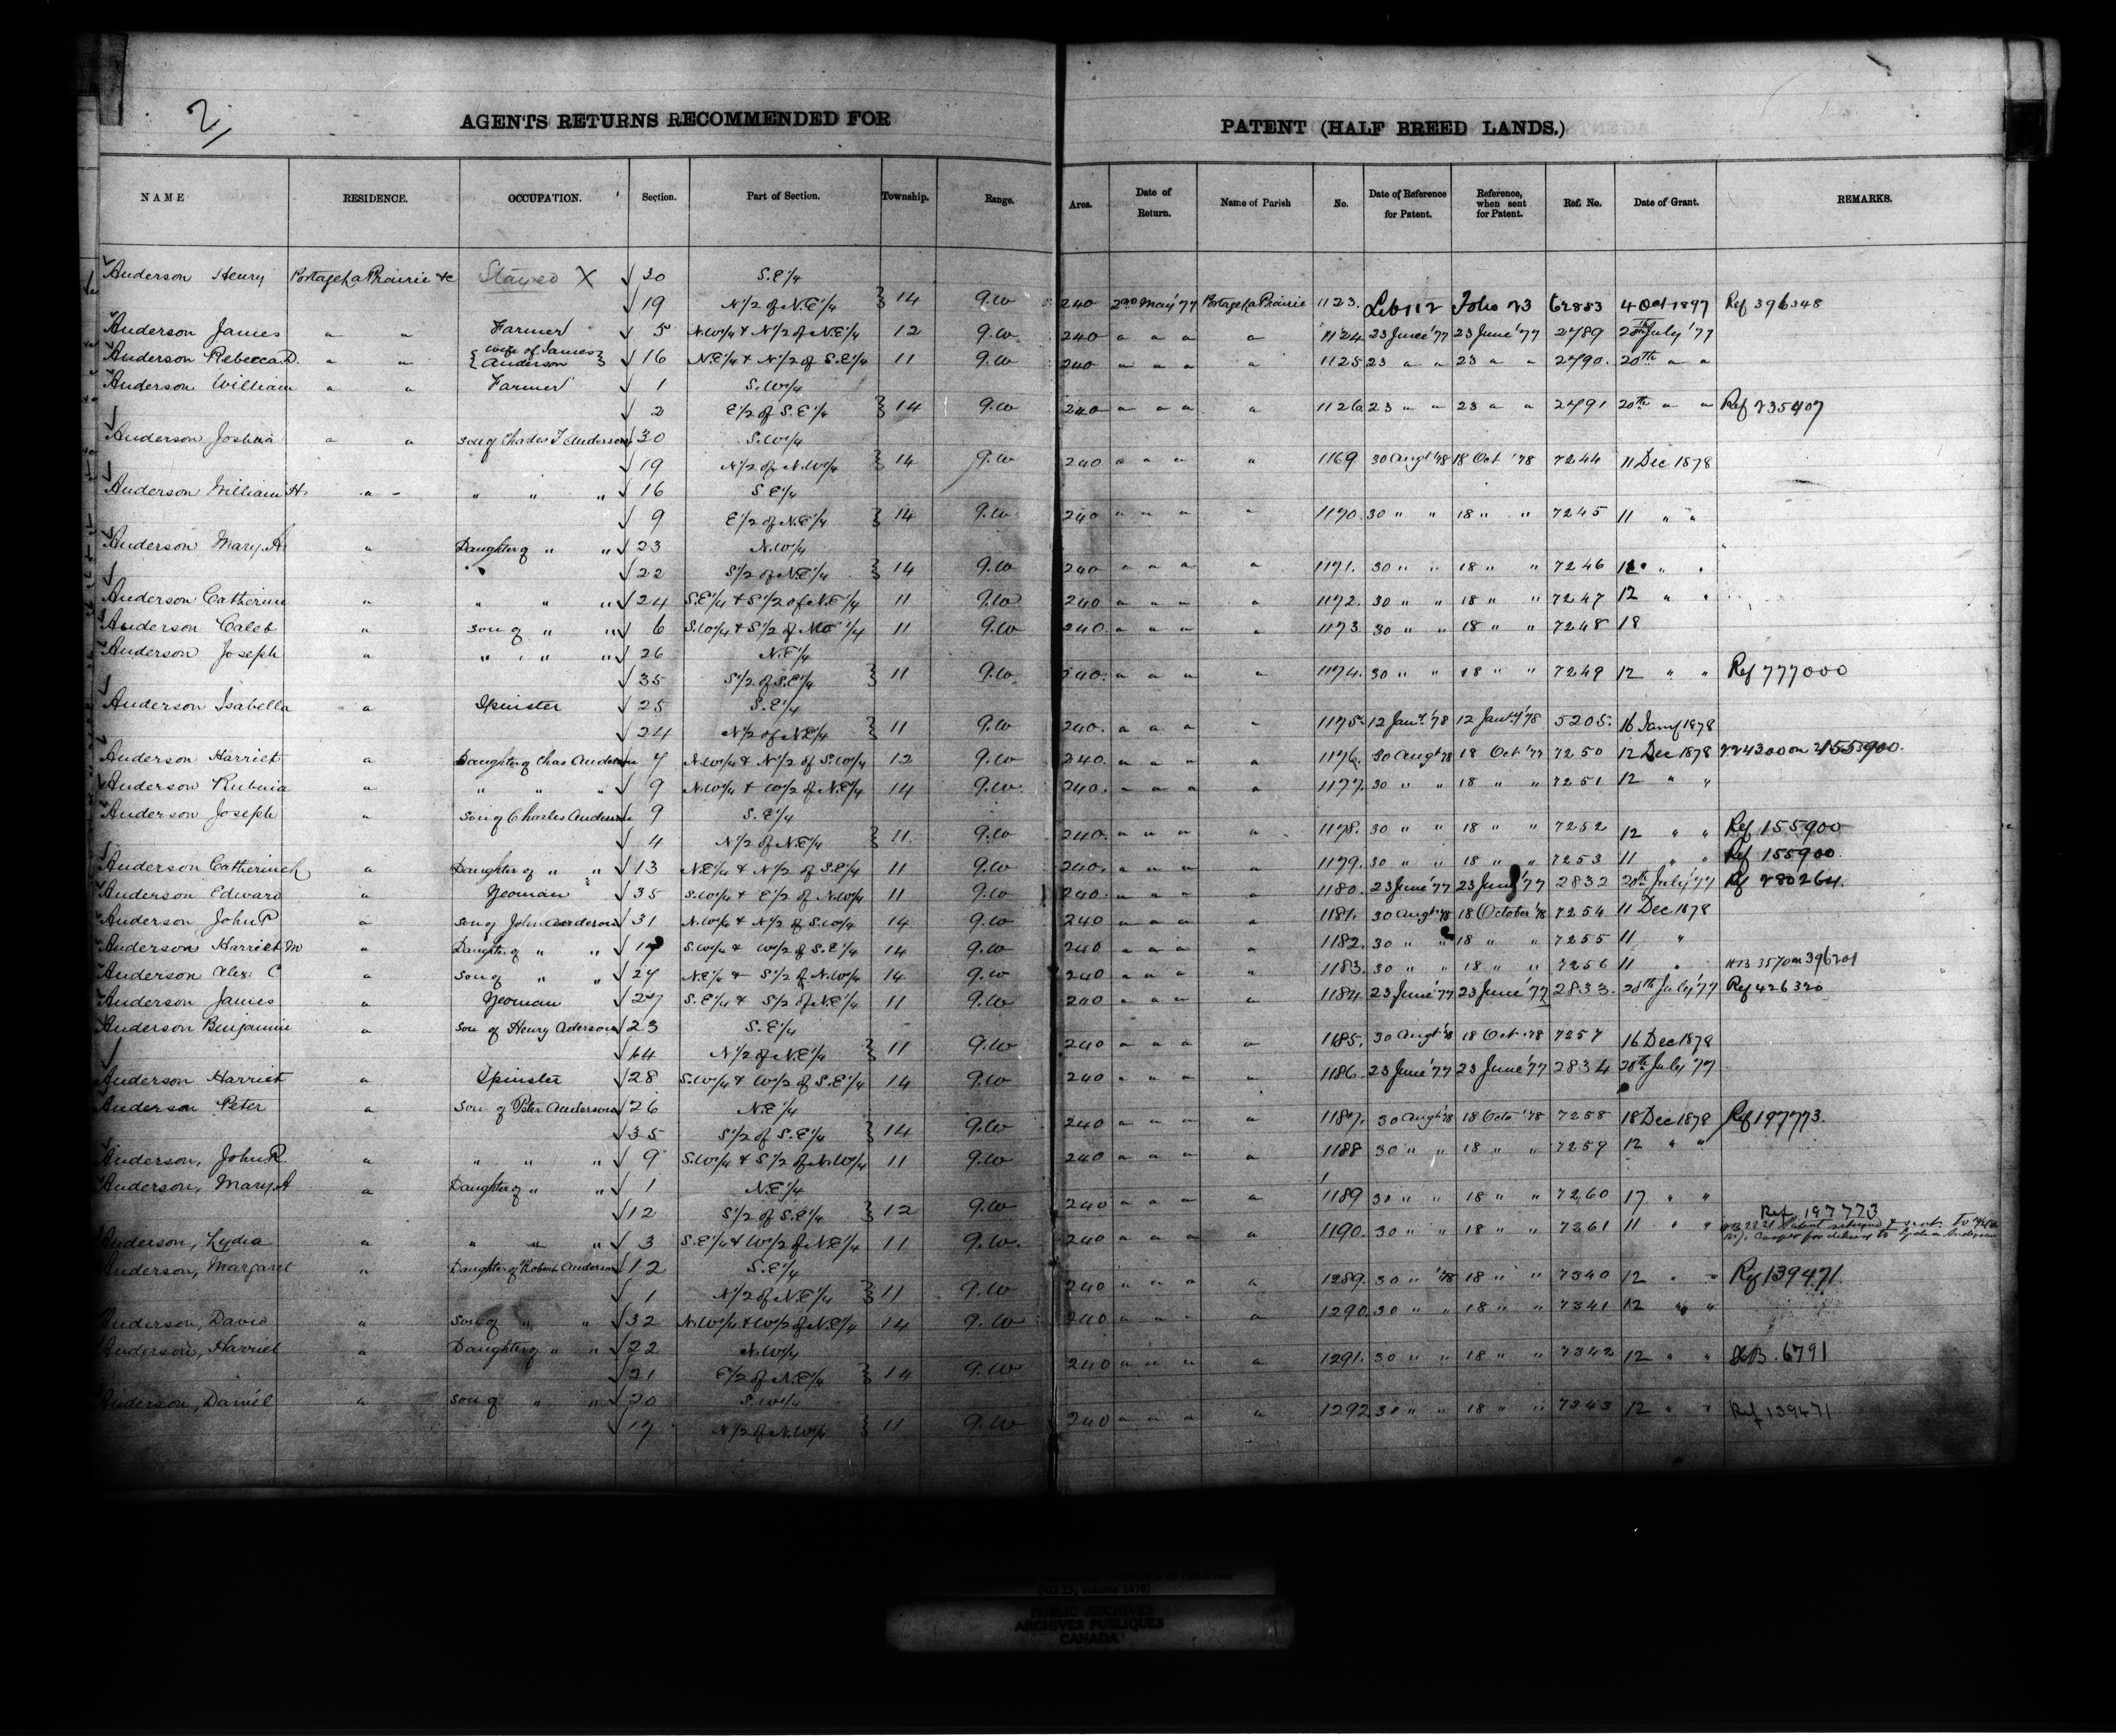 2/
AGENTS RETURNS RECOMMENDED FOR PATENT (HALF BREED LANDS.)
NAME RESIDENCE. OCCUPATION. Section. Part of Section. Township. Range. Area. Date of Return. Name of Parish No. Date of Reference for Patent. Reference, when sent for Patent. Ref. No. Date of Grant. REMARKS.
Anderson Henry Portage La Prairie &c Stayed X √ 30 S.E.1/4
√ 19 N.1/2 of N.E.1/4 } 14 9.W 240 2nd May '77 Portage La Prairie 1123. Lib 112 Folio 23 62883 4 Oct 1897 Ref 396348
Anderson James " " Farmer √ 5 N.W.1/4 & N.1/2 of N.E.1/4 12 9.W 240 " " " " 1124 23 June '77 23 June '77 2789 20th July '77
Anderson Rebecca D. " " { Wife of James Anderson } √ 16 N.E.1/4 & N.1/2 of S.E.1/4 11 9.W 240 " " " " 1125 23 " " 23 " " 2790. 20th " "
Anderson William " " Farmer √ 1 S.W.1/4
√ 2 E.1/2 of S.E.1/4 } 14 9.W 240 " " " " 1126. 23 " " 23 " " 2791 20th " " Ref 235407
Anderson Joshua " " son of Charles T Anderson √ 30 S.W.1/4
√ 19 N.1/2 of N.W.1/4 } 14 9.W 240 " " " " 1169 30 Augt '78 18 Oct '78 7244 11 Dec 1878
Anderson William H. " " " " √ 16 S.E.1/4
√ 9 E.1/2 of N.E.1/4 } 14 9.W 240 " " " " 1170. 30 " " 18 " " 7245 11 " "
Anderson Mary A. " Daughter of " " √ 23 N.W.1/4
√ 22 S.1/2 of N.E.1/4 } 14 9.W 240 " " " " 1171. 30 " " 18 " " 7246 " "
Anderson Catherine " " " " √ 24 S.E.1/4 & S.1/2 of N.E.1/4 11 9.W 240 " " " " 1172. 30 " " 18 " " 7247 12 " "
Anderson Caleb " son of " " √ 6 S.W.1/4 & S.1/2 of 1/4 11 9.W 240. " " " " 1173 30 " " 18 " " 7248 18
Anderson Joseph " " " " √ 26 N.E.1/4
√ 35 S.1/2 of S.E.1/4 } 11 9.W. 240. " " " " 1174. 30 " " 18 " " 7249 12 " " Ref 777000
Anderson Isabella " Spinster √ 25 S.E.1/4
√ 24 N.1/2 of N.E.1/4 } 11 9.W 240. " " " " 1175. 12 Jany '78 12 Jany '78 5205. 16 Jany 1878
Anderson Harriet " Daughter of Chas Anderson 4 N.W.1/4 & N.1/2 of S.W.1/4 12 9.W 240. " " " " 1176. 30 Augt '78 18 Oct '78 7250 12 Dec 1878 on 155900.
Anderson " " " " √ 9 N.W.1/4 & W.1/2 of N.E.1/4 14 9.W. 240. " " " " 1177. 30 " " 18 " " 7251 12 " "
Anderson Joseph " Son of Charles Anderson √ 9 S.E.1/4
√ 4 N.1/2 of N.E.1/4 } 11. 9.W 240. " " " " 1178. 30 " " 18 " " 7252 12 " " Ref 155900
Anderson Catherine " Daughter of " " √ 13 N.E.1/4 & N.1/2 of S.E.1/4 11 9.W 240. " " " " 1179. 30 " " 18 " " 7253 11 " " Ref 155900.
Anderson Edward " Yeoman √ 35 S.W.1/4 & E.1/2 of N.W.1/4 11 9.W 240. " " " " 1180. 23 June '77 23 June '77 2832 20th July '77 Ref 280264.
Anderson John P " son of John Anderson √ 31 N.W.1/4 & N.1/2 of S.W.1/4 14 9.W 240 " " " " 1181. 30 Augt '78 18 October '78 7254 11 Dec 1878
Anderson Harriet M " Daughter of " " √ S.W.1/4 & W.1/2 of S.E.1/4 14 9.W 240 " " " " 1182. 30 " " 18 " " 7255 11 "
Anderson Alex: C " son of " " √ 27 N.E.1/4 & S.1/2 of N.W.1/4 14 9.W 240 " " " " 1183. 30 " " 18 " " 7256 11 " HB 3570 on 396201
Anderson James " Yeoman √ 27 S.E.1/4 & S.1/2 of N.E.1/4 11 9.W 240 " " " " 1184 23 June '77 23 June '77 2833. 20th July '77 Ref 426320
Anderson Benjamin " son of Henry Aderson √ 23 S.E.1/4
√ 14 N.1/2 of N.E.1/4 } 11 9.W 240 " " " " 1185. 30 Augt '78 18 Oct. '78 7257 16 Dec 1878
Anderson Harriet " Spinster √ 28 S.W.1/4 & W.1/2 of S.E.1/4 14 9.W 240 " " " " 1186. 23 June '77 23 June '77 2834 20th July '77
Anderson Peter " son of Peter Anderson √ 26 N.E.1/4
√ 35 S.1/2 of S.E.1/4 } 14 9.W 240 " " " " 1187. 30 Augt '78 18 Octo '78 7258 18 Dec 1878 Ref 197773.
Anderson, John R " " " " √ 9 S.W.1/4 & S.1/2 of N.W.1/4 11 9.W 240 " " " " 1188 30 " " 18 " " 7259 12 " "
Anderson, Mary A " Daughter of " " √ 1 N.E.1/4
√ 12 S.1/2 of S.E.1/4 } 12 9.W 240 " " " " 1189 30 " " 18 " " 7260 17 " "
Anderson, Lydia " " " " √ 3 S.E.1/4 & W.1/2 of N.E.1/4 11 9.W. 240 " " " " 1190. 30 " " 18 " " 7261 11 " " Ref 197773
Patent returned & sent to
Cooper for delivery to Lydia Anderson
Anderson, Margaret " Daughter of Robert Anderson √ 12 S.E.1/4
√ 1 N.1/2 of N.E.1/4 } 11 9.W 240 " " " " 1289. 30 " '78 18 " " 7340 12 " " Ref 139471.
Anderson, David " son of " " √ 32 N.W.1/4 & W.1/2 of N.E.1/4 14 9.W 240 " " " " 1290. 30 " " 18 " " 7341 12 " "
Anderson, Harriet " Daughter of " " √ 22 N.W.1/4
√ 21 E.1/2 of N.E.1/4 } 14 9.W 240 " " " " 1291. 30 " " 18 " " 7342 12 " " HB. 6791
Anderson, Daniel " son of " " √ 20 S.W.1/4
√ 17 N.1/2 of N.W.1/4 } 11 9.W 240 " " " " 1292 30 " " 18 " " 7343 12 " " Ref 139471
(RG 15, volume 1476)
PUBLIC ARCHIVES
ARCHIVES PUBLIQUES
CANADA